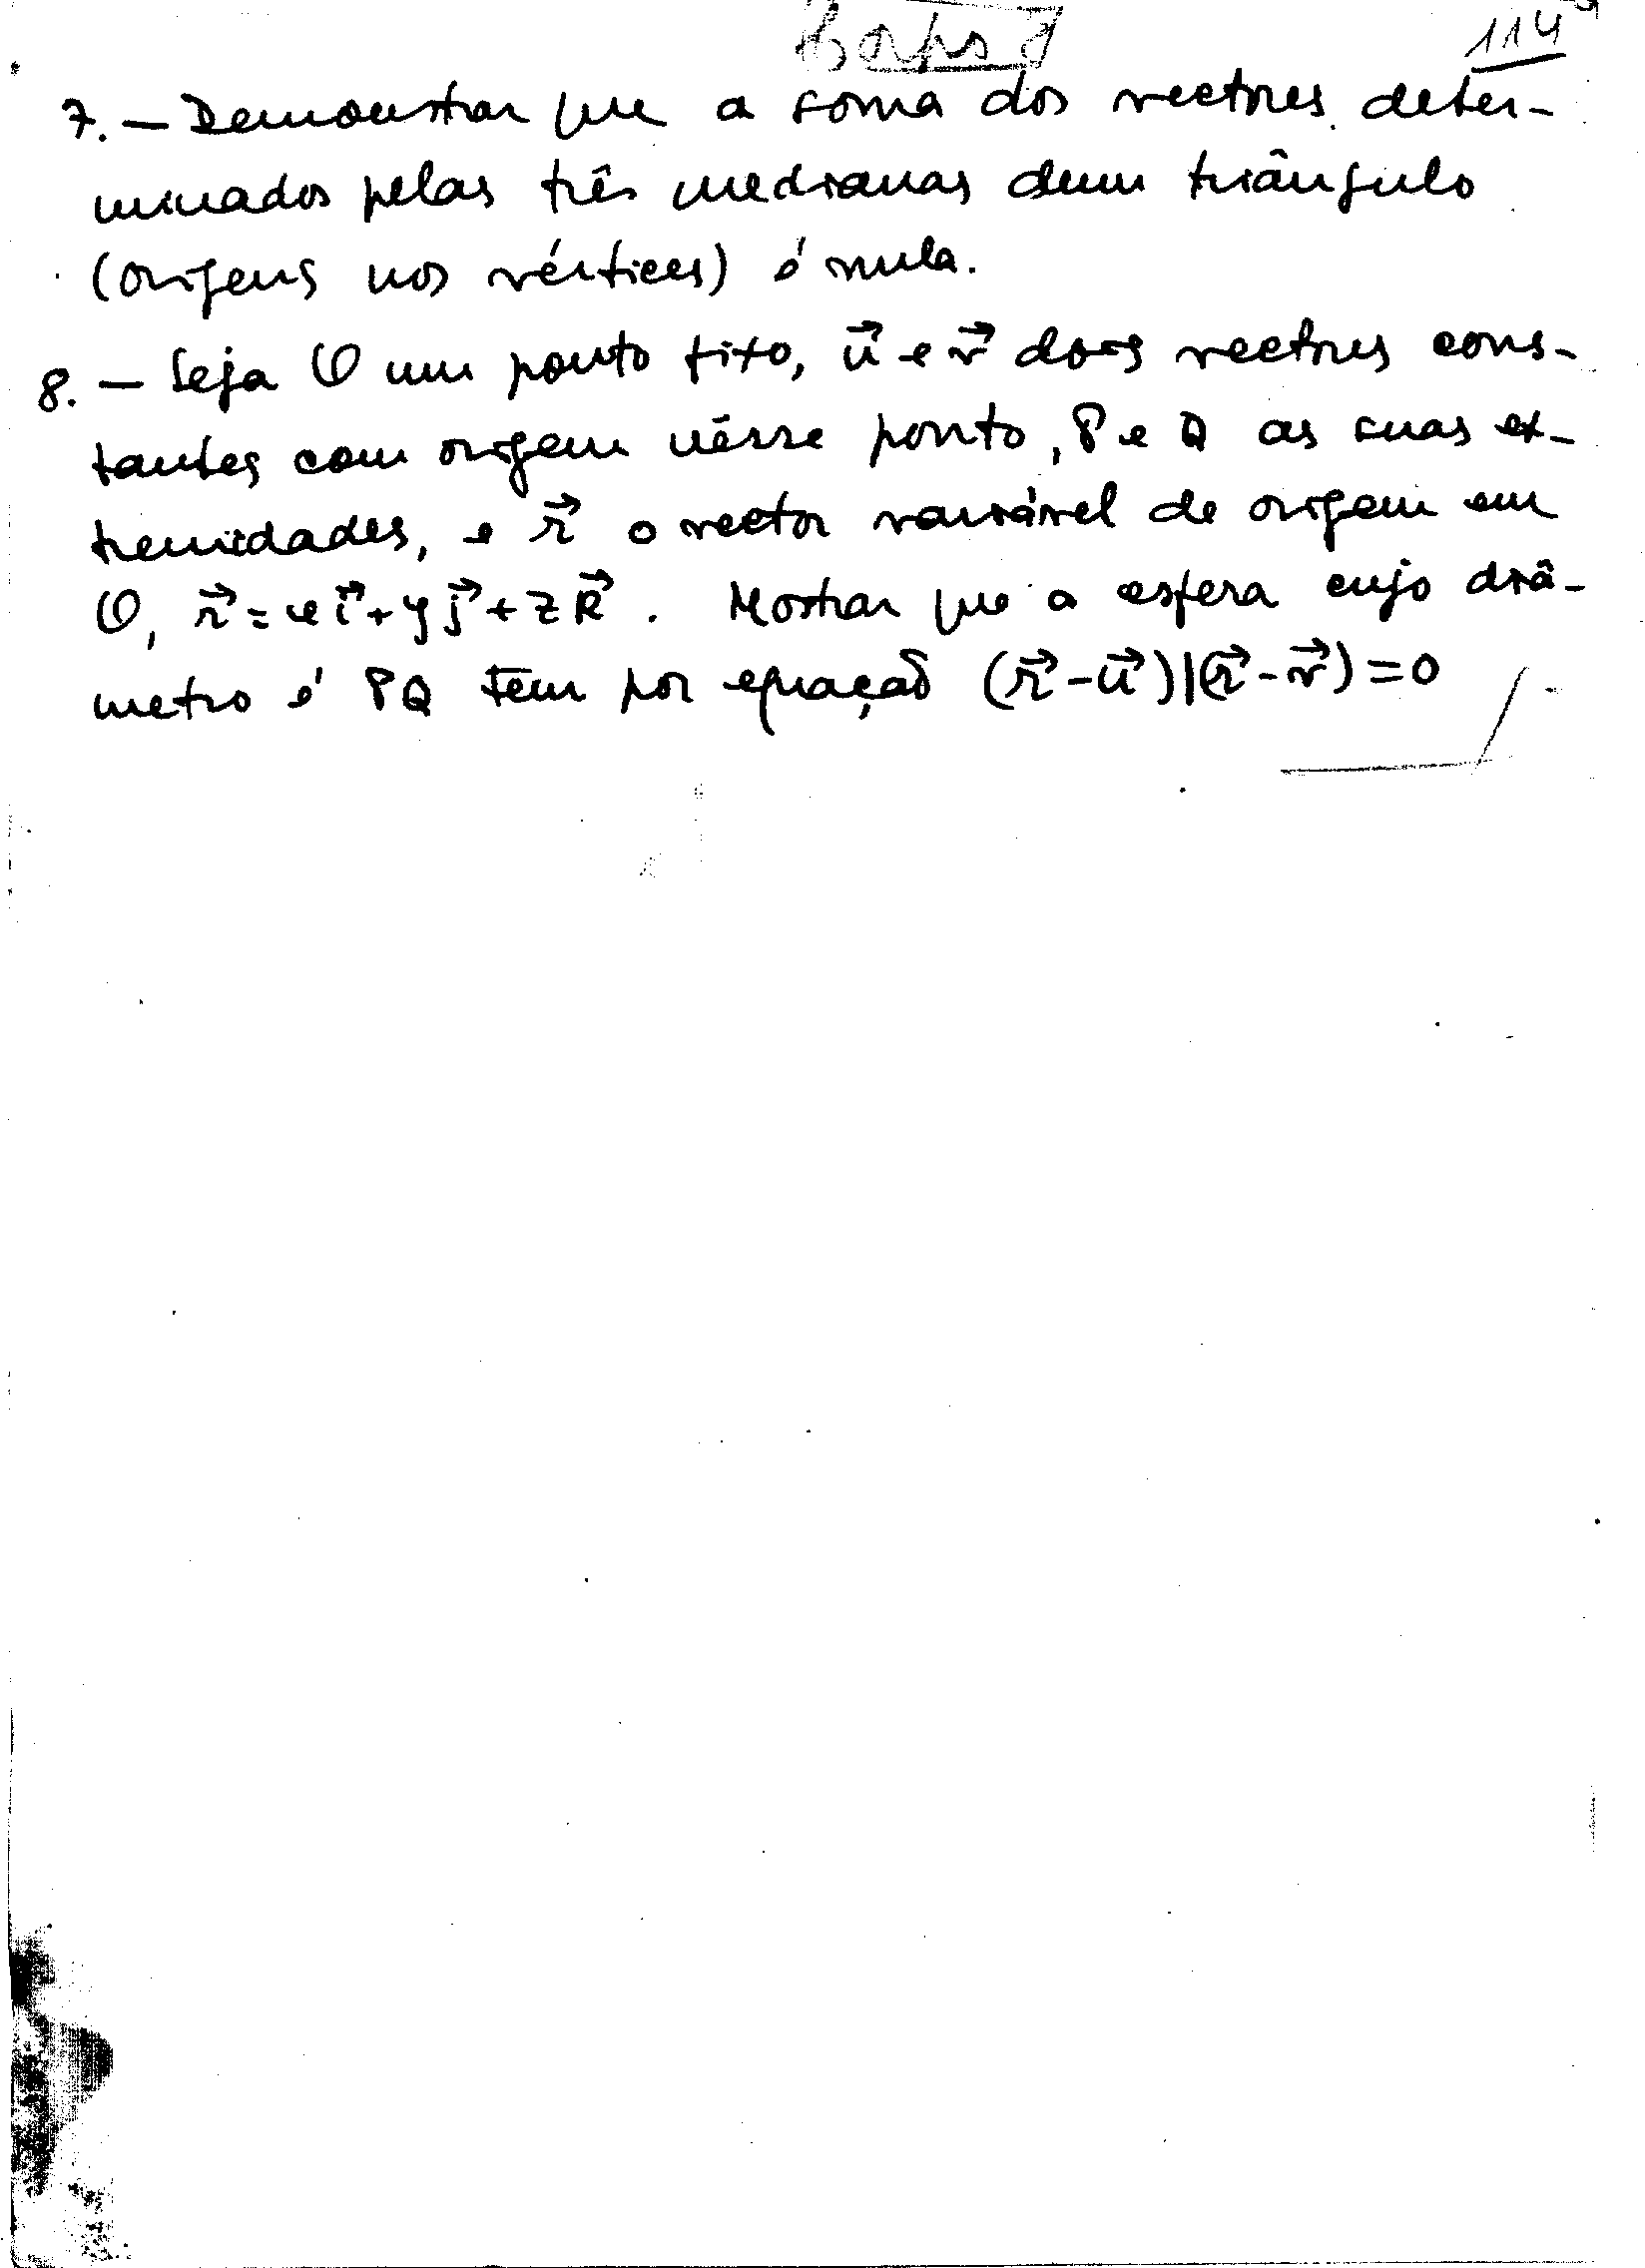 114
7. — Demonstrar que a soma dos vectores deter-
minados pelas três medianas dum triângulo
(origens nos vértices) é nula.
8. — Seja O um ponto fixo, u⃗ e v⃗ dois vectores cons-
tantes com origem nêsse ponto, P e Q as suas ex-
tremidades, e r⃗ o vector variável de origem em
O, r⃗ = x i⃗ + y j⃗ + z k⃗ . Mostrar que a esfera cujo diâ-
metro é PQ tem por equação (r⃗ - u⃗)|(r⃗ - v⃗) = 0